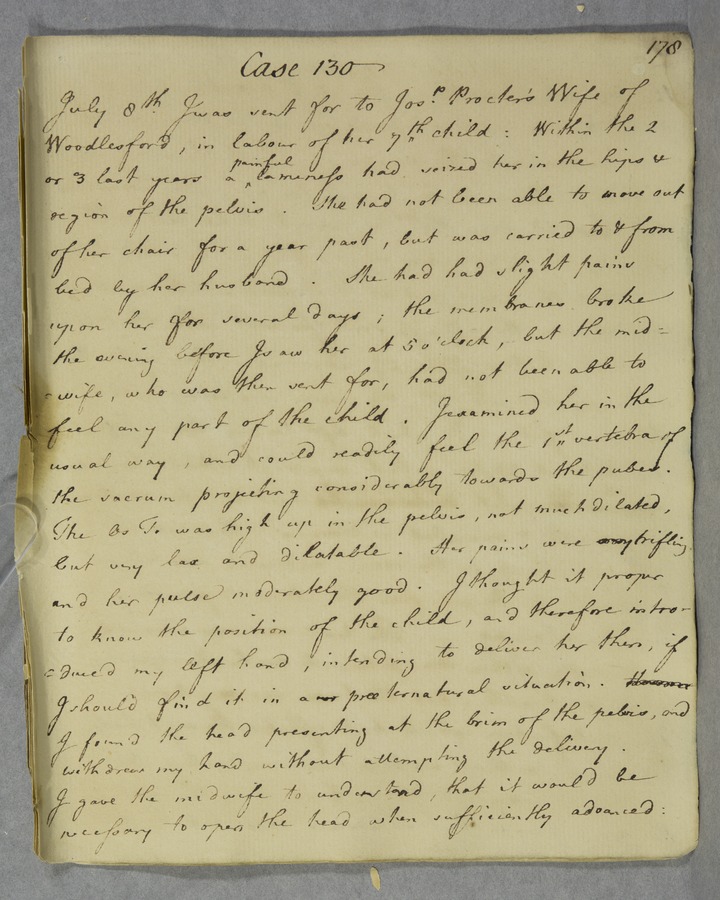 178
Case 130
July 8th I was sent for to Josp. Procter's Wife of
Woodlesford, in labour of her 7th child : Within the 2
or 3 last years a painful lameness had seized her in the hips &
region of the pelvis . She had not been able to move out
of her chair for a year past, but was carried to & from
bed by her husband . She had had slight pains
upon her for several days ; the membranes broke
the evening before I saw her at 5 o'clock, but the mid=
=wife, who was then sent for, had not been able to
feel any part of the child . I examined her in the
usual way, and could readily feel the 1st vertebra of
the sacrum projecting considerably towards the pubes.
The Os Ti was high up in the pelvis, not much dilated,
but very lax and dilatable . Her pains were very trifling
and her pulse moderately good . I thought it proper
to know the position of the child, and therefore intro-
=duced my left hand, intending to deliver her then, if
I should find it in a preeternatural situation . However
I found the head presenting at the brim of the pelvis, and
withdrew my hand without attempting the delivery .
I gave the midwife to understand, that it would be
necessary to open the head when sufficiently advanced :